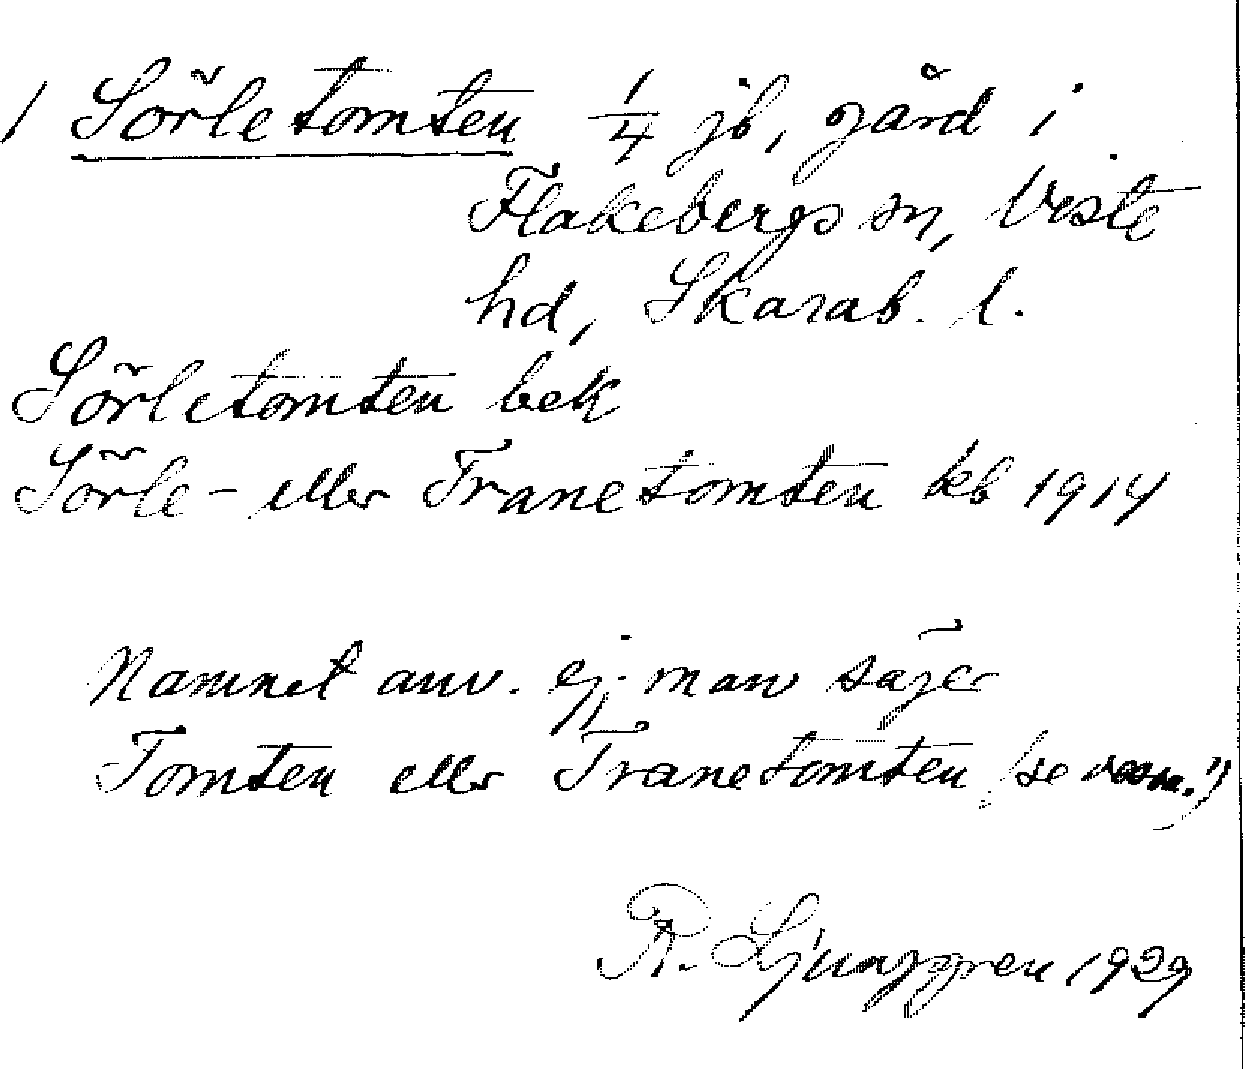 1 Sörletomten 1/4 jb, gård i
Flakebergs sn, Viste
hd, Skarab. l.
Sörletomten bek
Sörle- eller Tranetomten kb 1914
Namnet anv. ej. man säger
Tomten eller Tranetomten (se
R. Ljunggren 1929